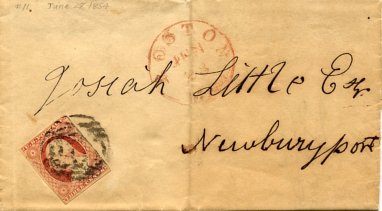 #11 June 2 1854
BOSTON
Josiah Little Esq
Newburyport